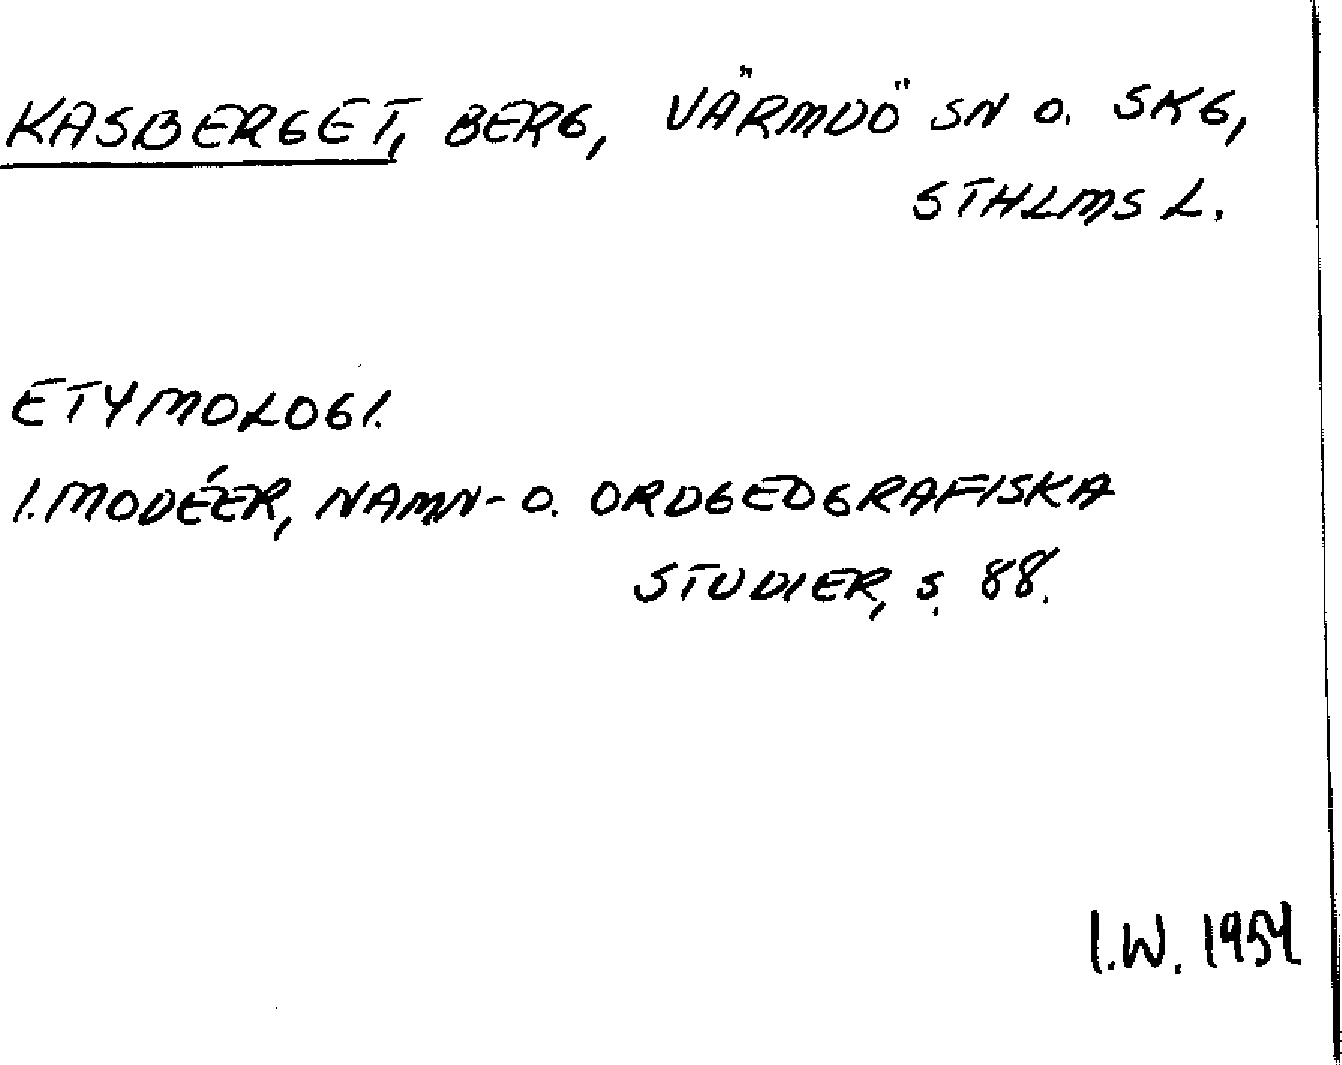 KASBERGET, BERG, VÄRMDÖ SN O. SKG,
STHLMS L.
ETYMOLOGI.
I. MODÉER, NAMN- O. ORDGEOGRAFISKA
STUDIER, S. 88.
I.W. 1954